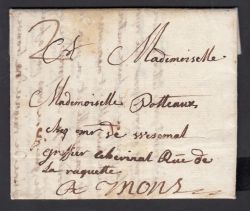 A Mademoiselle
Mademoiselle Potteaux
chez mr de Wesemal
greffier echevinal Rue de
la raquette
A mons